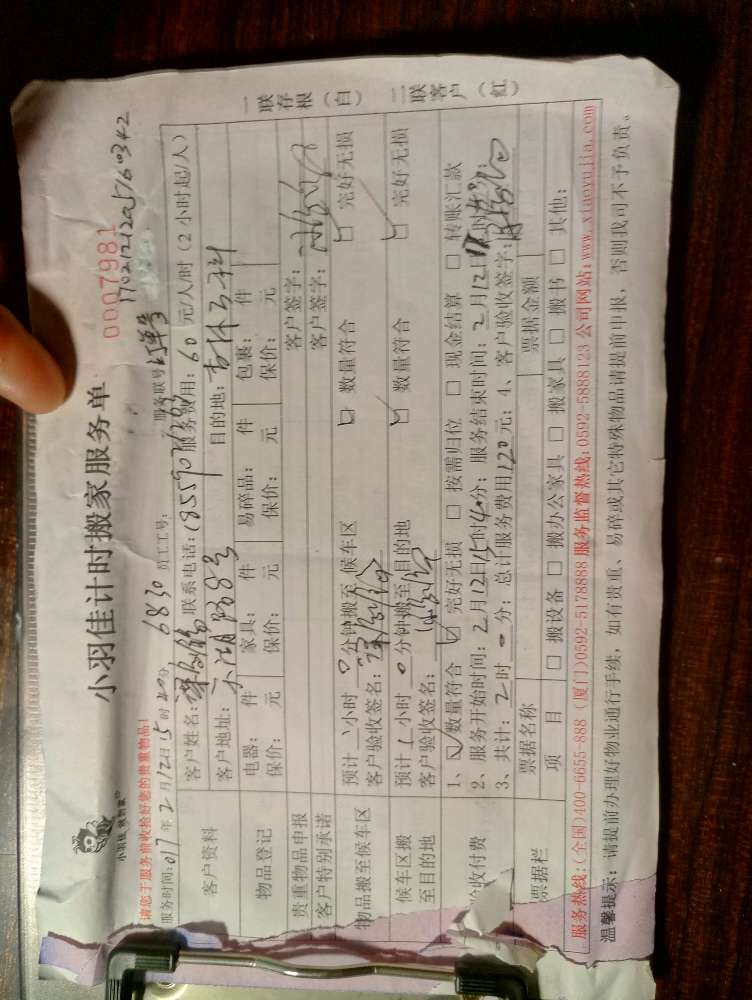 小羽佳计时搬家服务单
小羽佳 搬到家
0007981
170212120576034 2
请您于服务前收拾好您的贵重物品!
服务时间:017年2月12日15时40分 6830 员工工号: 服务联号
客户资料
客户姓名: 联系电话: 服务费用:60元/人/时(2小时起/人)
客户地址: 目的地:
物品登记
电器: 件 家具: 件 易碎品: 件 包裹: 件
保价: 元 保价: 元 保价: 元 保价: 元
贵重物品申报 客户签字:
客户特别承诺 客户签字:
物品搬至候车区
预计1小时0分钟搬至 候车区 数量符合 完好无损
客户验收签名:
候车区搬至目的地
预计1小时0分钟搬至目的地 数量符合 完好无损
客户验收签名:
验收付费
1、数量符合 完好无损 □ 按需归位 □ 现金结算 □ 转账汇款
2、服务开始时间:2月12日15时40分;服务结束时间:2月12日17时
3、共计:2时0分;总计服务费用120元;4、客户验收签字:
票据栏
票据名称 票据金额
项 目 □ 搬设备 □ 搬办公家具 □ 搬家具 □ 搬书 □ 其他:
服务热线:(全国)400-6655-888 (厦门)0592-5178888 服务监督热线:0592-5888123 公司网站:www.xiaoyujia.com
温馨提示:请提前办理好物业通行手续,如有贵重、易碎或其它特殊物品请提前申报,否则我司不予负责。
一联存根(白) 二联客户(红)